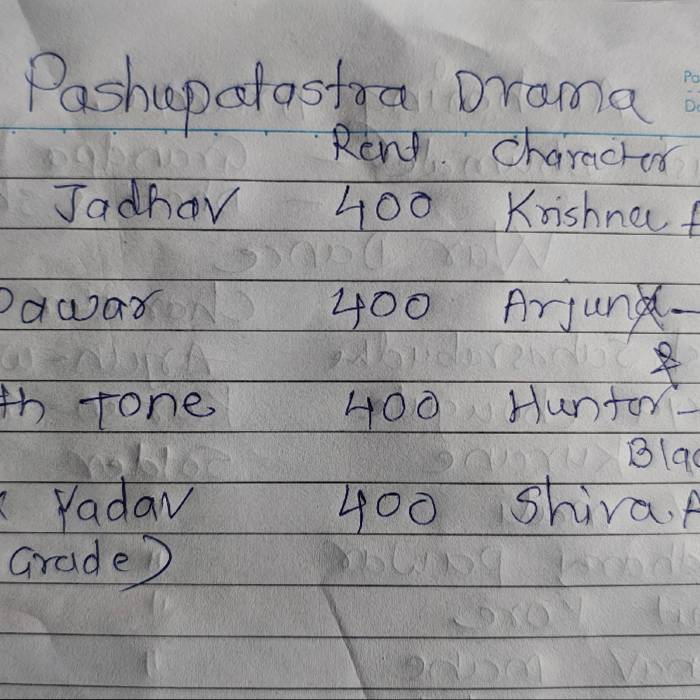 Pashupatastra Drama
Rent. Character
Jadhav 400 Krishna
Pawar 400 Arjun
&
th Tone 400 Hunter-
Blac
Yadav 400 Shiva A
Grade)